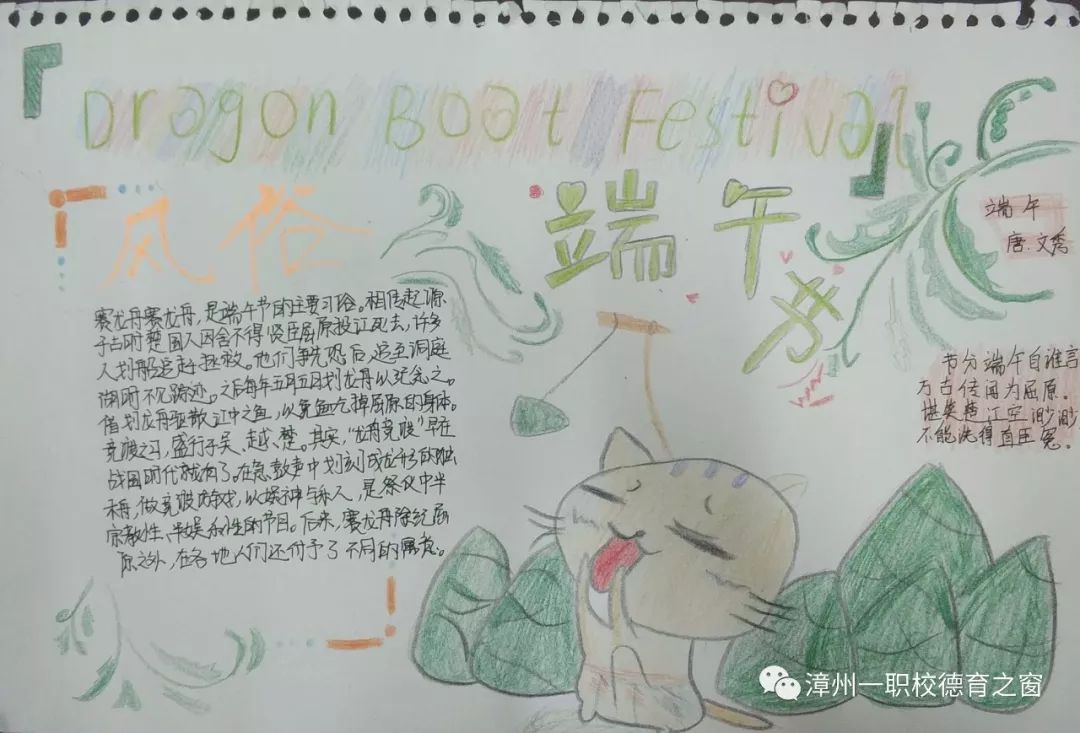 Dragon Boat Festival
风俗
端午节
端午
唐.文秀
赛龙舟赛龙舟,是端午节的主要习俗。相传起源
于古时楚国人因舍不得贤臣屈原投江死去,许多
人划船追赶拯救。他们争先恐后,追至洞庭
湖时不见踪迹。之后每年五月五日划龙舟以纪念之。
借划龙舟驱散江中之鱼,以免鱼吃掉屈原的身体。
竞渡之习,盛行于吴、越、楚。其实,"龙舟竞渡"早在
战国时代就有了。在急鼓声中划刻成龙形的独
木舟,做竞渡游戏,以娱神与乐人,是祭仪中半
宗教性、半娱乐性的节目。后来,赛龙舟除纪屈
原之外,在各地人们还付予了不同的寓意。
节分端午自谁言
万古传闻为屈原.
堪笑楚江空渺渺
不能洗得直臣冤.
漳州一职校德育之窗